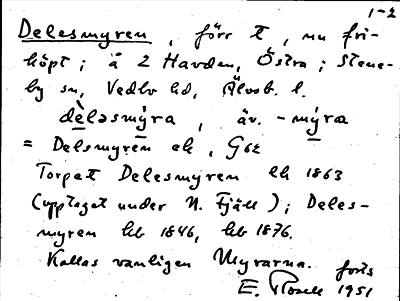 1-2
Delesmyren, förr t, nu fri-
köpt; å 2 Havden, Östra; Stene-
by sn, Vedbo hd, Älvsb. l.
dèləsmýra, äv. -mýra
= Delsmyren ek, G62
Torpet Delesmyren lh 1863
(upptaget under N. Fjäll); Deles-
myren hb 1846, hb 1876.
Kallas vanligen Myrarna. forts
E. Rosell 1951